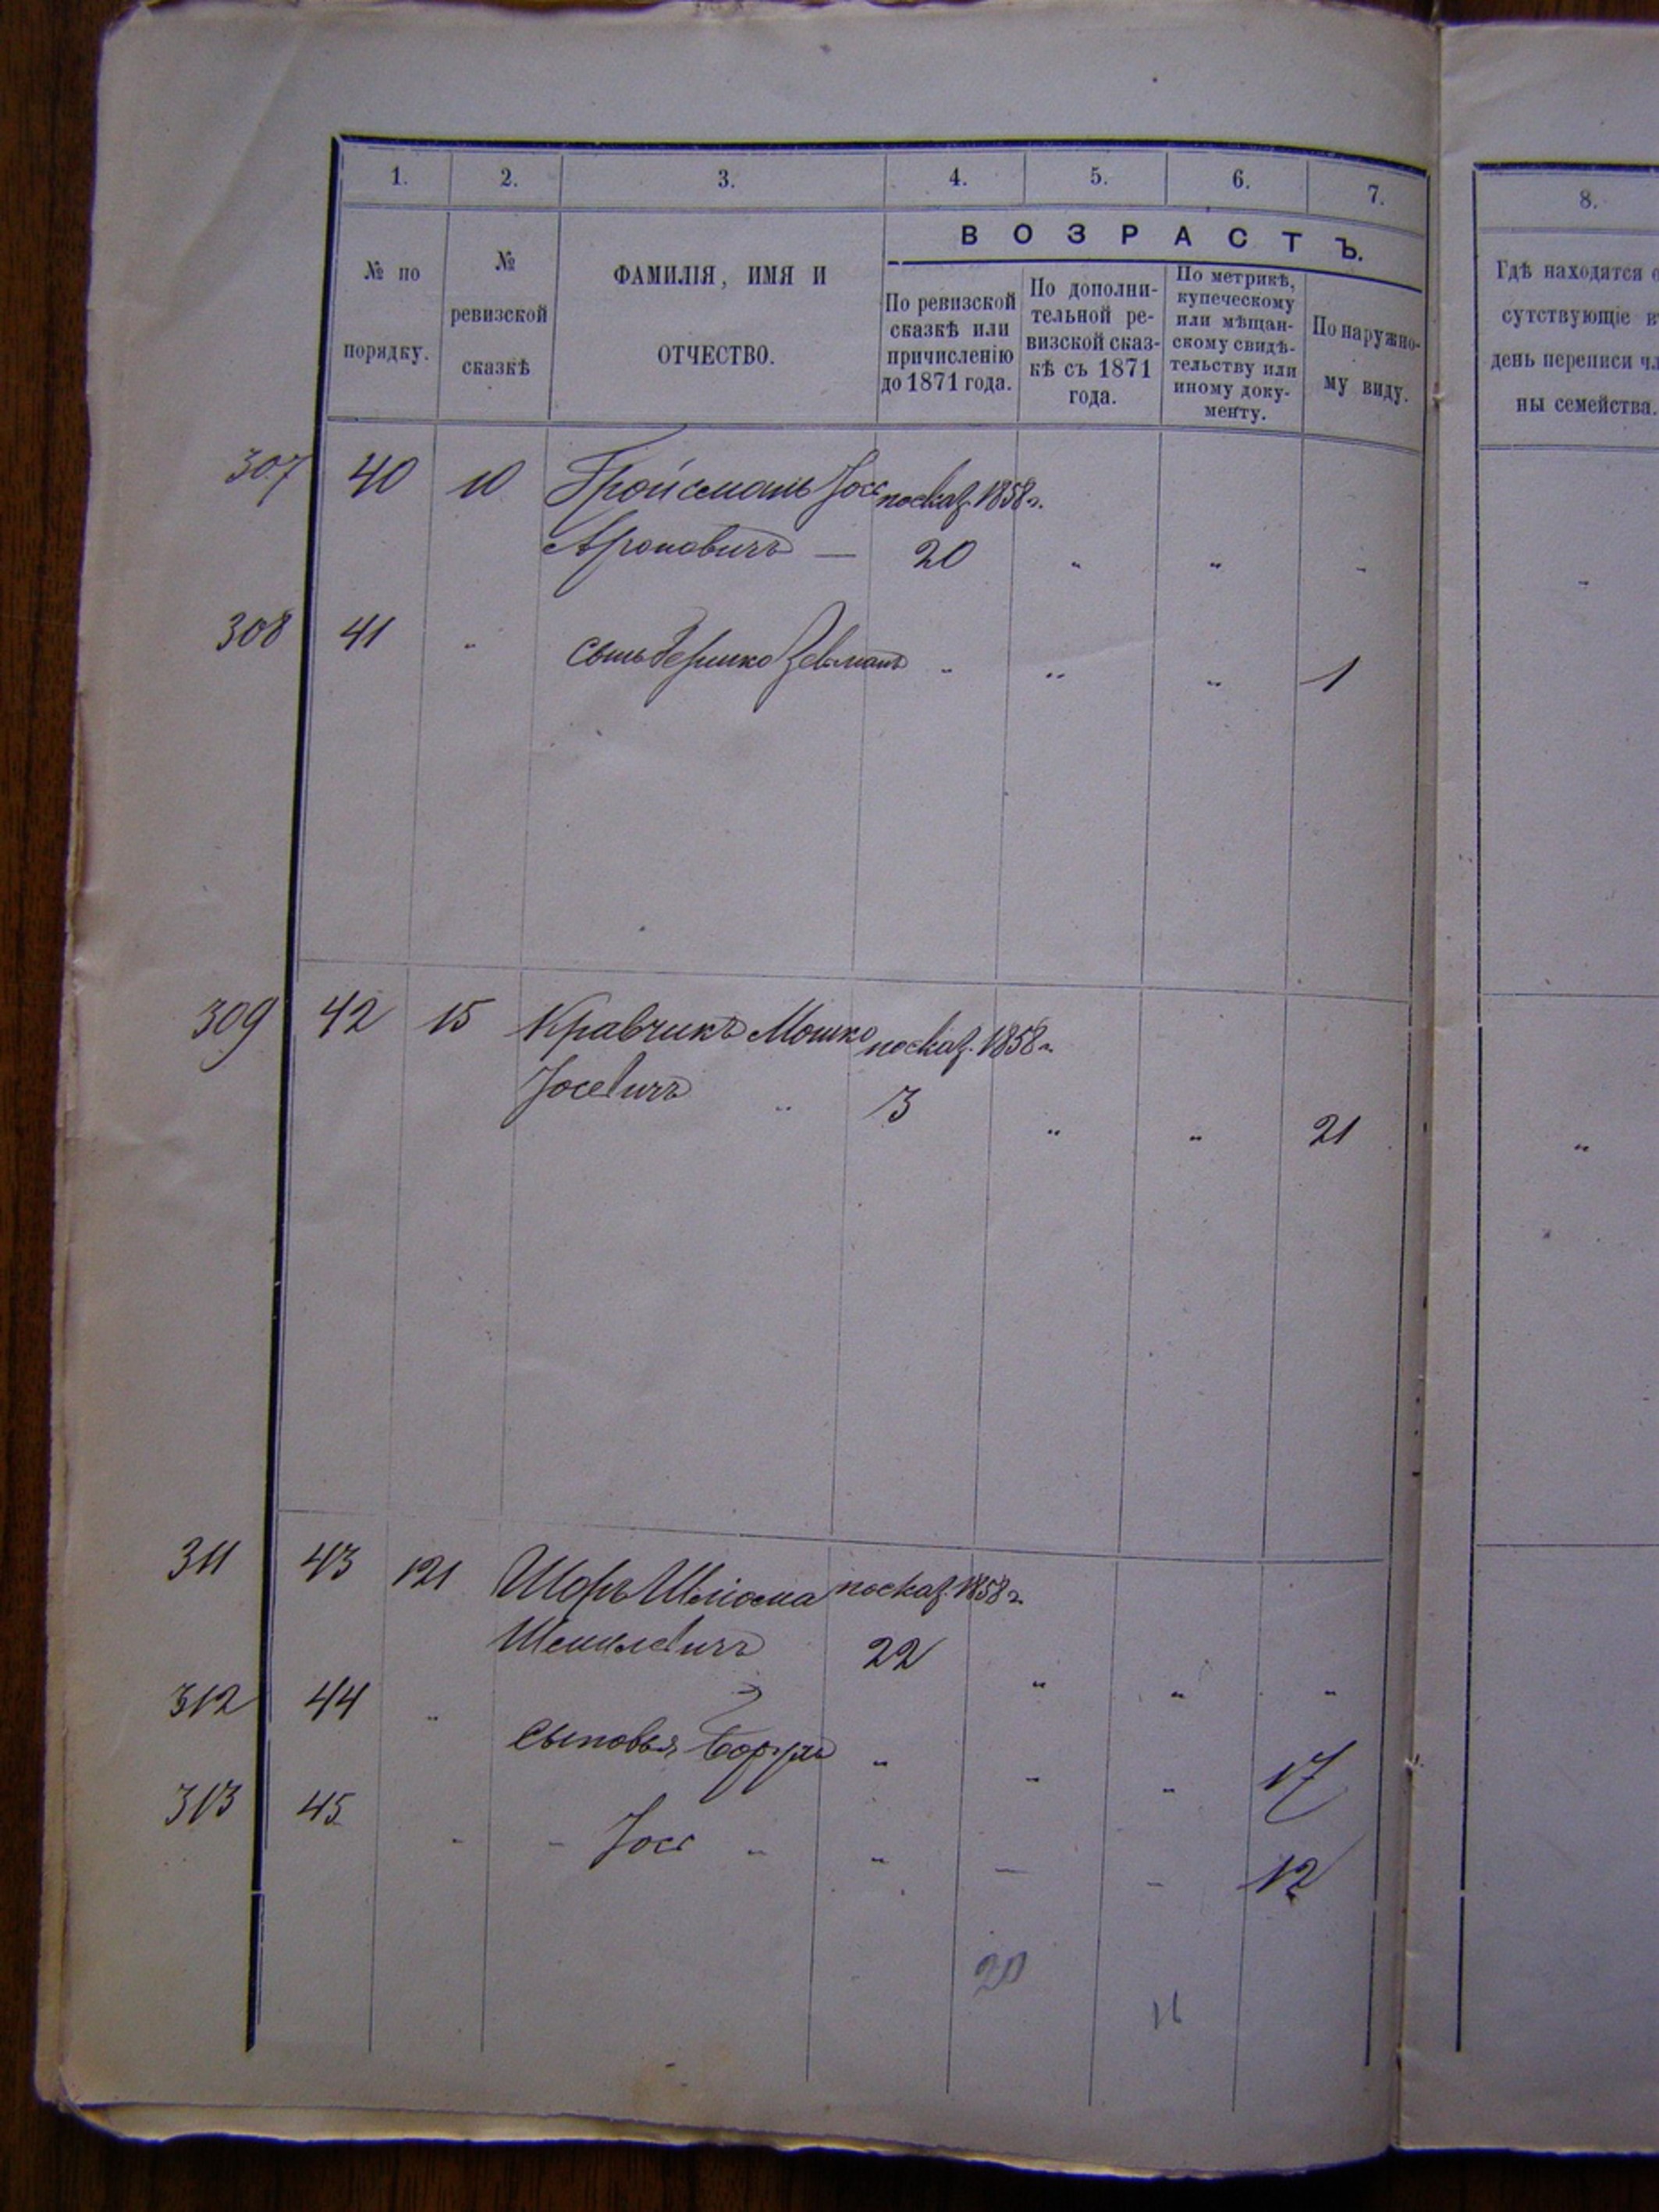 1. 2. 3. 4. 5. 6. 7. 8.
ВОЗРАСТЪ.
№ по
порядку.
№
ревизской
сказкѣ
ФАМИЛІЯ, ИМЯ И
ОТЧЕСТВО.
По ревизской
сказкѣ или
причисленію
до 1871 года.
По дополни-
тельной ре-
визской сказ-
кѣ съ 1871
года.
По метрикѣ,
купеческому
или мѣщан-
скому свидѣ-
тельству или
иному доку-
менту.
По наружно-
му виду.
Гдѣ находятся о
сутствующіе в
день переписи чл
ны семейства.
307 40 10 Гройсманъ Іос по сказ. 1858 г.
Ароновичъ — 20 " " "
308 41 " сынъ Гершко Зельманъ " " " 1
309 42 15 Кравчикъ Мошко по сказ. 1858 г.
Іосевичъ " 3 " " 21 "
311 43 121 Шоръ Шліома по сказ. 1858 г.
22 " " "
312 44 " Сыновья Борухъ " " " 17
313 45 " " Іос " " — — 12
20